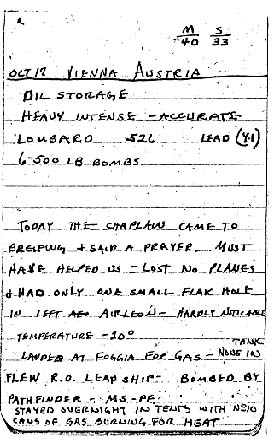 M S
40 33
OCT 17 VIENNA AUSTRIA
OIL STORAGE
HEAVY INTENSE - ACCURATE
LOMBARD 526 LEAD (4-1)
6-500 LB BOMBS
TODAY THE CHAPLAIN CAME TO
BREIFING & SAID A PRAYER. MUST
HAVE HELPED US - LOST NO PLANES
& HAD ONLY ONE SMALL FLAK HOLE
IN LEFT AILERON - HARDLY NOTICABLE
TEMPERATURE -20°
LANDED AT FOGGIA FOR GAS - NONE IN TANK
FLEW R.O. LEAD SHIP - BOMBED BY
PATHFINDER - MS-PF
STAYED OVERNIGHT IN TENTS WITH NO 10
CANS OF GAS BURNING FOR HEAT